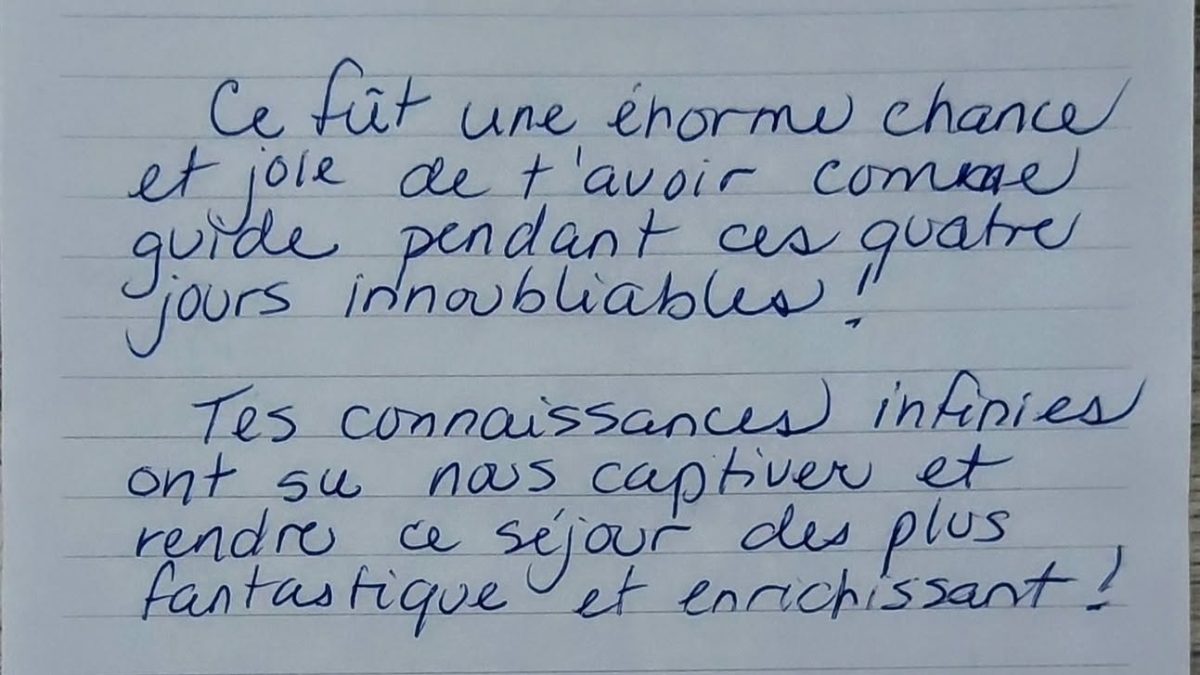 Ce fût une énorme chance
et joie de t'avoir comme
guide pendant ces quatre
jours innoubliables !
Tes connaissances infinies
ont su nous captiver et
rendre ce séjour des plus
fantastique et enrichissant !